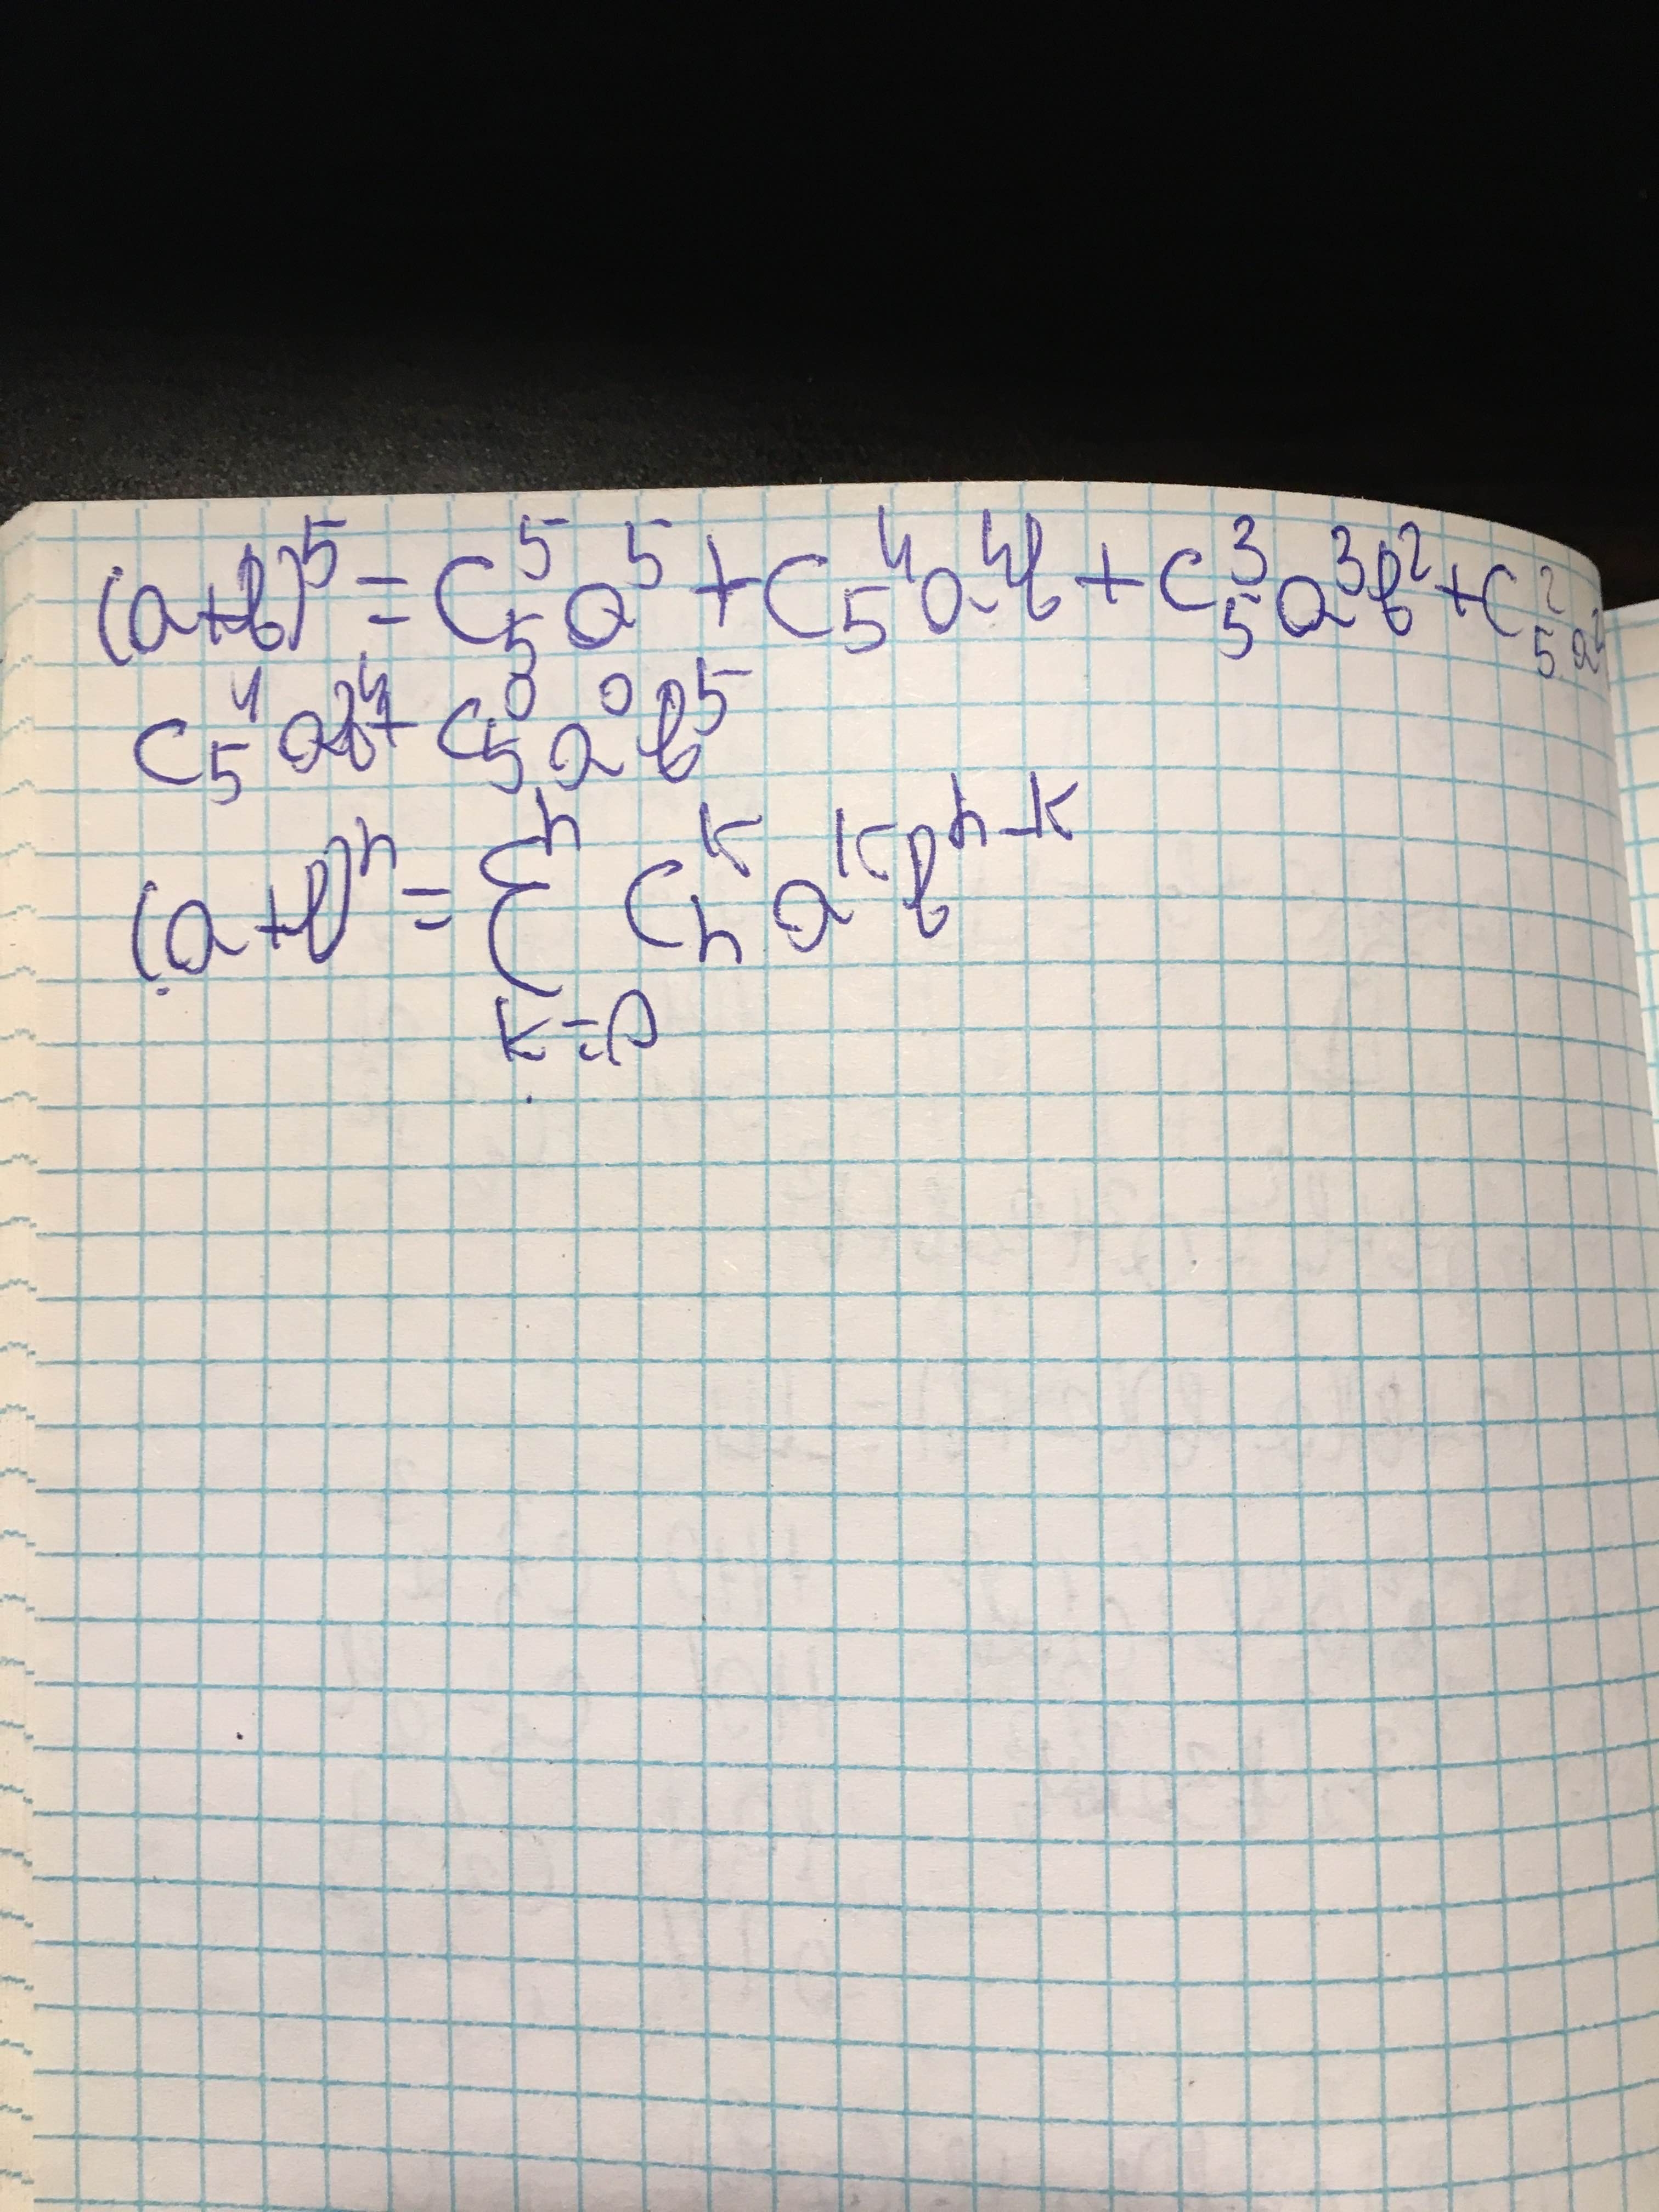 (a+b)⁵ = C₅⁵a⁵ + C₅⁴a⁴b + C₅³a³b² + C₅²a²
C₅⁴ab⁴ + C₅⁰a⁰b⁵
(a+b)ⁿ = Σⁿₖ₌₀ Cₙᵏaᵏbⁿ⁻ᵏ